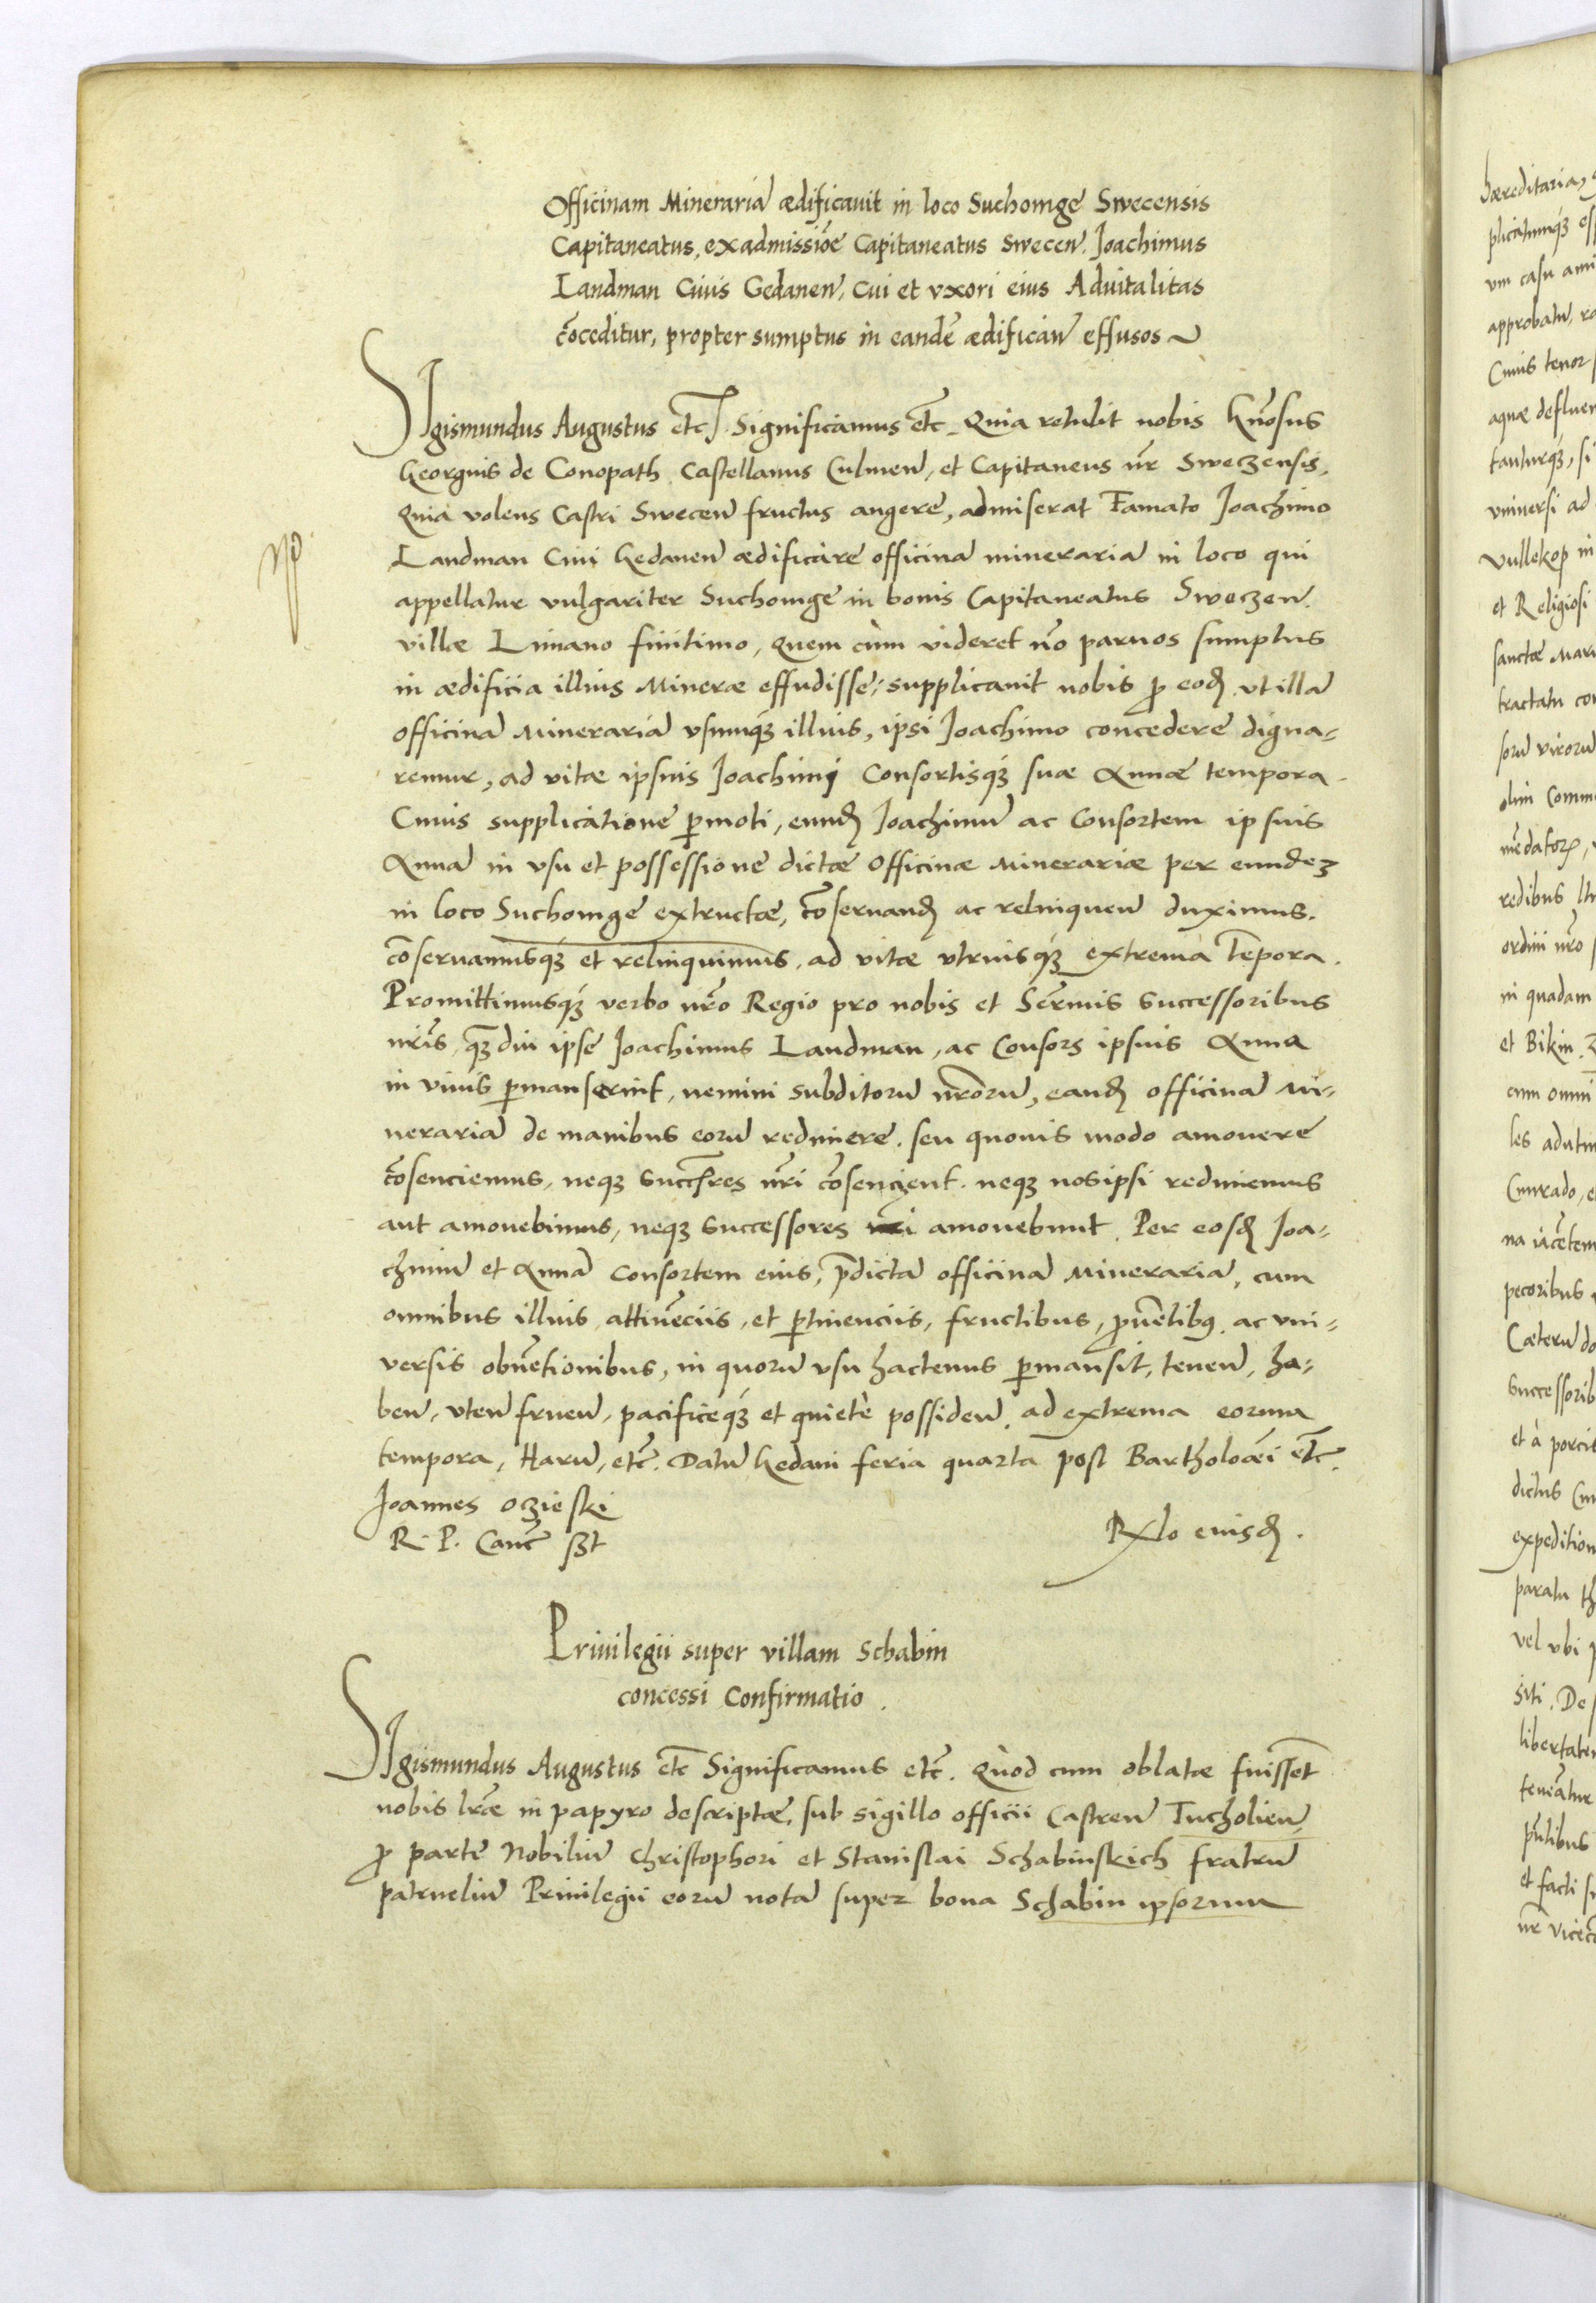 Officinam Minerariā ædificauit in loco Suchomge Swecensis
Capitaneatus, ex admissiōe Capitaneatus Swecen̄. Joachimus
Landman Ciuis Gedanen̄, cui et vxori eius Aduitalitas
cōceditur, propter sumptus in eandē ædifican̄ effusos ~
SIgismundus Augustus etc̄. Significamus etc̄. Quia retulit nobis Gn̄osus
Georgius de Conopath Castellanus Culmen̄, et Capitaneus nr̄ Sweczensis,
Quia volens Castri Swecen̄ fructus augere, admiserat Famato Joachimo
Landman Ciui Gedanen̄ ædificare officinā minerariā in loco qui
appellatur vulgariter Suchomge in bonis Capitaneatus Sweczen̄.
villæ Linano finitimo, Quem cùm videret nō paruos sumptus
in ædificia illius Mineræ effudisse, supplicauit nobis ꝓ eoꝺ̄, vt illā
officinā Minerariā vsumqꝫ illius, ipsi Joachimo concedere digna⸗
remur, ad vitæ ipsius Joachimi Consortisqꝫ suæ Annæ tempora.
Cuius supplicatione ꝑmoti, eunꝺ̄ Joachimū ac Consortem ipsius
Annā in vsu et possessione dictæ Officinæ Minerariæ per eundeꝫ
in loco Suchomge extructæ, cōseruanꝺ̄ ac relinquen̄ duximus.
cōseruamusqꝫ et relinquimus, ad vitæ vtriusqꝫ extrema tēpora.
Promittimusqꝫ verbo nr̄o Regio pro nobis et Ser̄mis Successoribus
nr̄is, qꝫdiu ipse Joachimus Landman, ac Consors ipsius Anna
in viuis ꝑmanserint, nemini subditorū nr̄orū, eanꝺ̄ officinā Mi⸗
nerariā de manibus eorū redimere, seu quouis modo amouere
cōsenciemus, neqꝫ Succ̄sres nr̄i cōsencient. neqꝫ nosipsi redimemus
aut amouebimus, neqꝫ Successores nr̄i amouebunt. Per eosꝺ̄ Joa⸗
chimū et Annā Consortem eius, p̄dictā officinā Minerariā, cum
omnibus illius attinēciis, et ꝑtinenciis, fructibus, ꝓuētibꝰ, ac vni⸗
versis obuētionibus, in quorū vsu hactenus ꝑmansit, tenen̄, ha⸗
ben̄, vten̄ fruen̄, pacificeqꝫ et quietè possiden̄ ad extrema eorum
tempora, Harū, etc̄. Datū Gedani feria quarta post Bartholomēi etc̄.
Joannes oczieski
R. P. Canc̄ sszt
Rlo eiusꝺ̄.
Priuilegii super villam Schabin
concessi Confirmatio.
SIgismundus Augustus etc̄ Significamus etc̄. Quòd cum oblatæ fuissēt
nobis lr̄æ in papyro descriptæ, sub sigillo officii Castren̄ Tucholien̄,
ꝓ parte Nobiliū Christophori et Stanislai Schabinskich fratrū
patrueliū Priuilegii eorū nota super bona Schabin ipsorum
hæreditaria,
plicatumqꝫ
vm casu
approbatu,
Cuius tenor
aquæ
tanturqꝫ, si
vniuersi ad
Vullekop in
et Religiosi
sanctæ
tractatu
sorū virorū
olim
redibus
ordini nr̄o
in quadam
et Bikin.
cum omni
les
Cunrado,
pecoribus
Cæterū do
et à porcis
dictus
expedition
paratu
vel vbi
siti. De
teneātur
et facti
nr̄